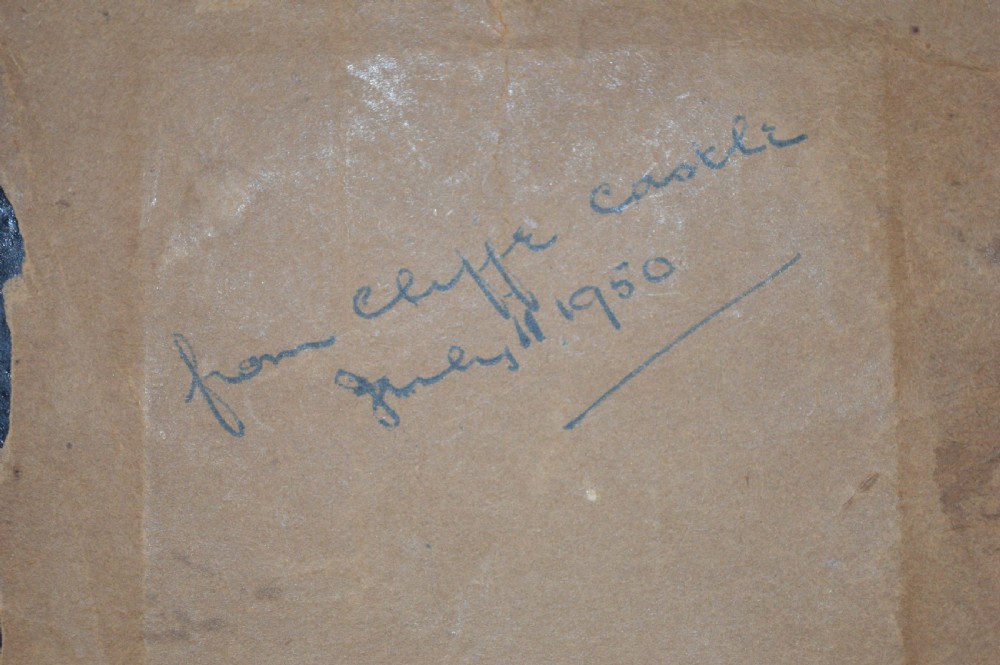 from Cliffe Castle
July 11 1950